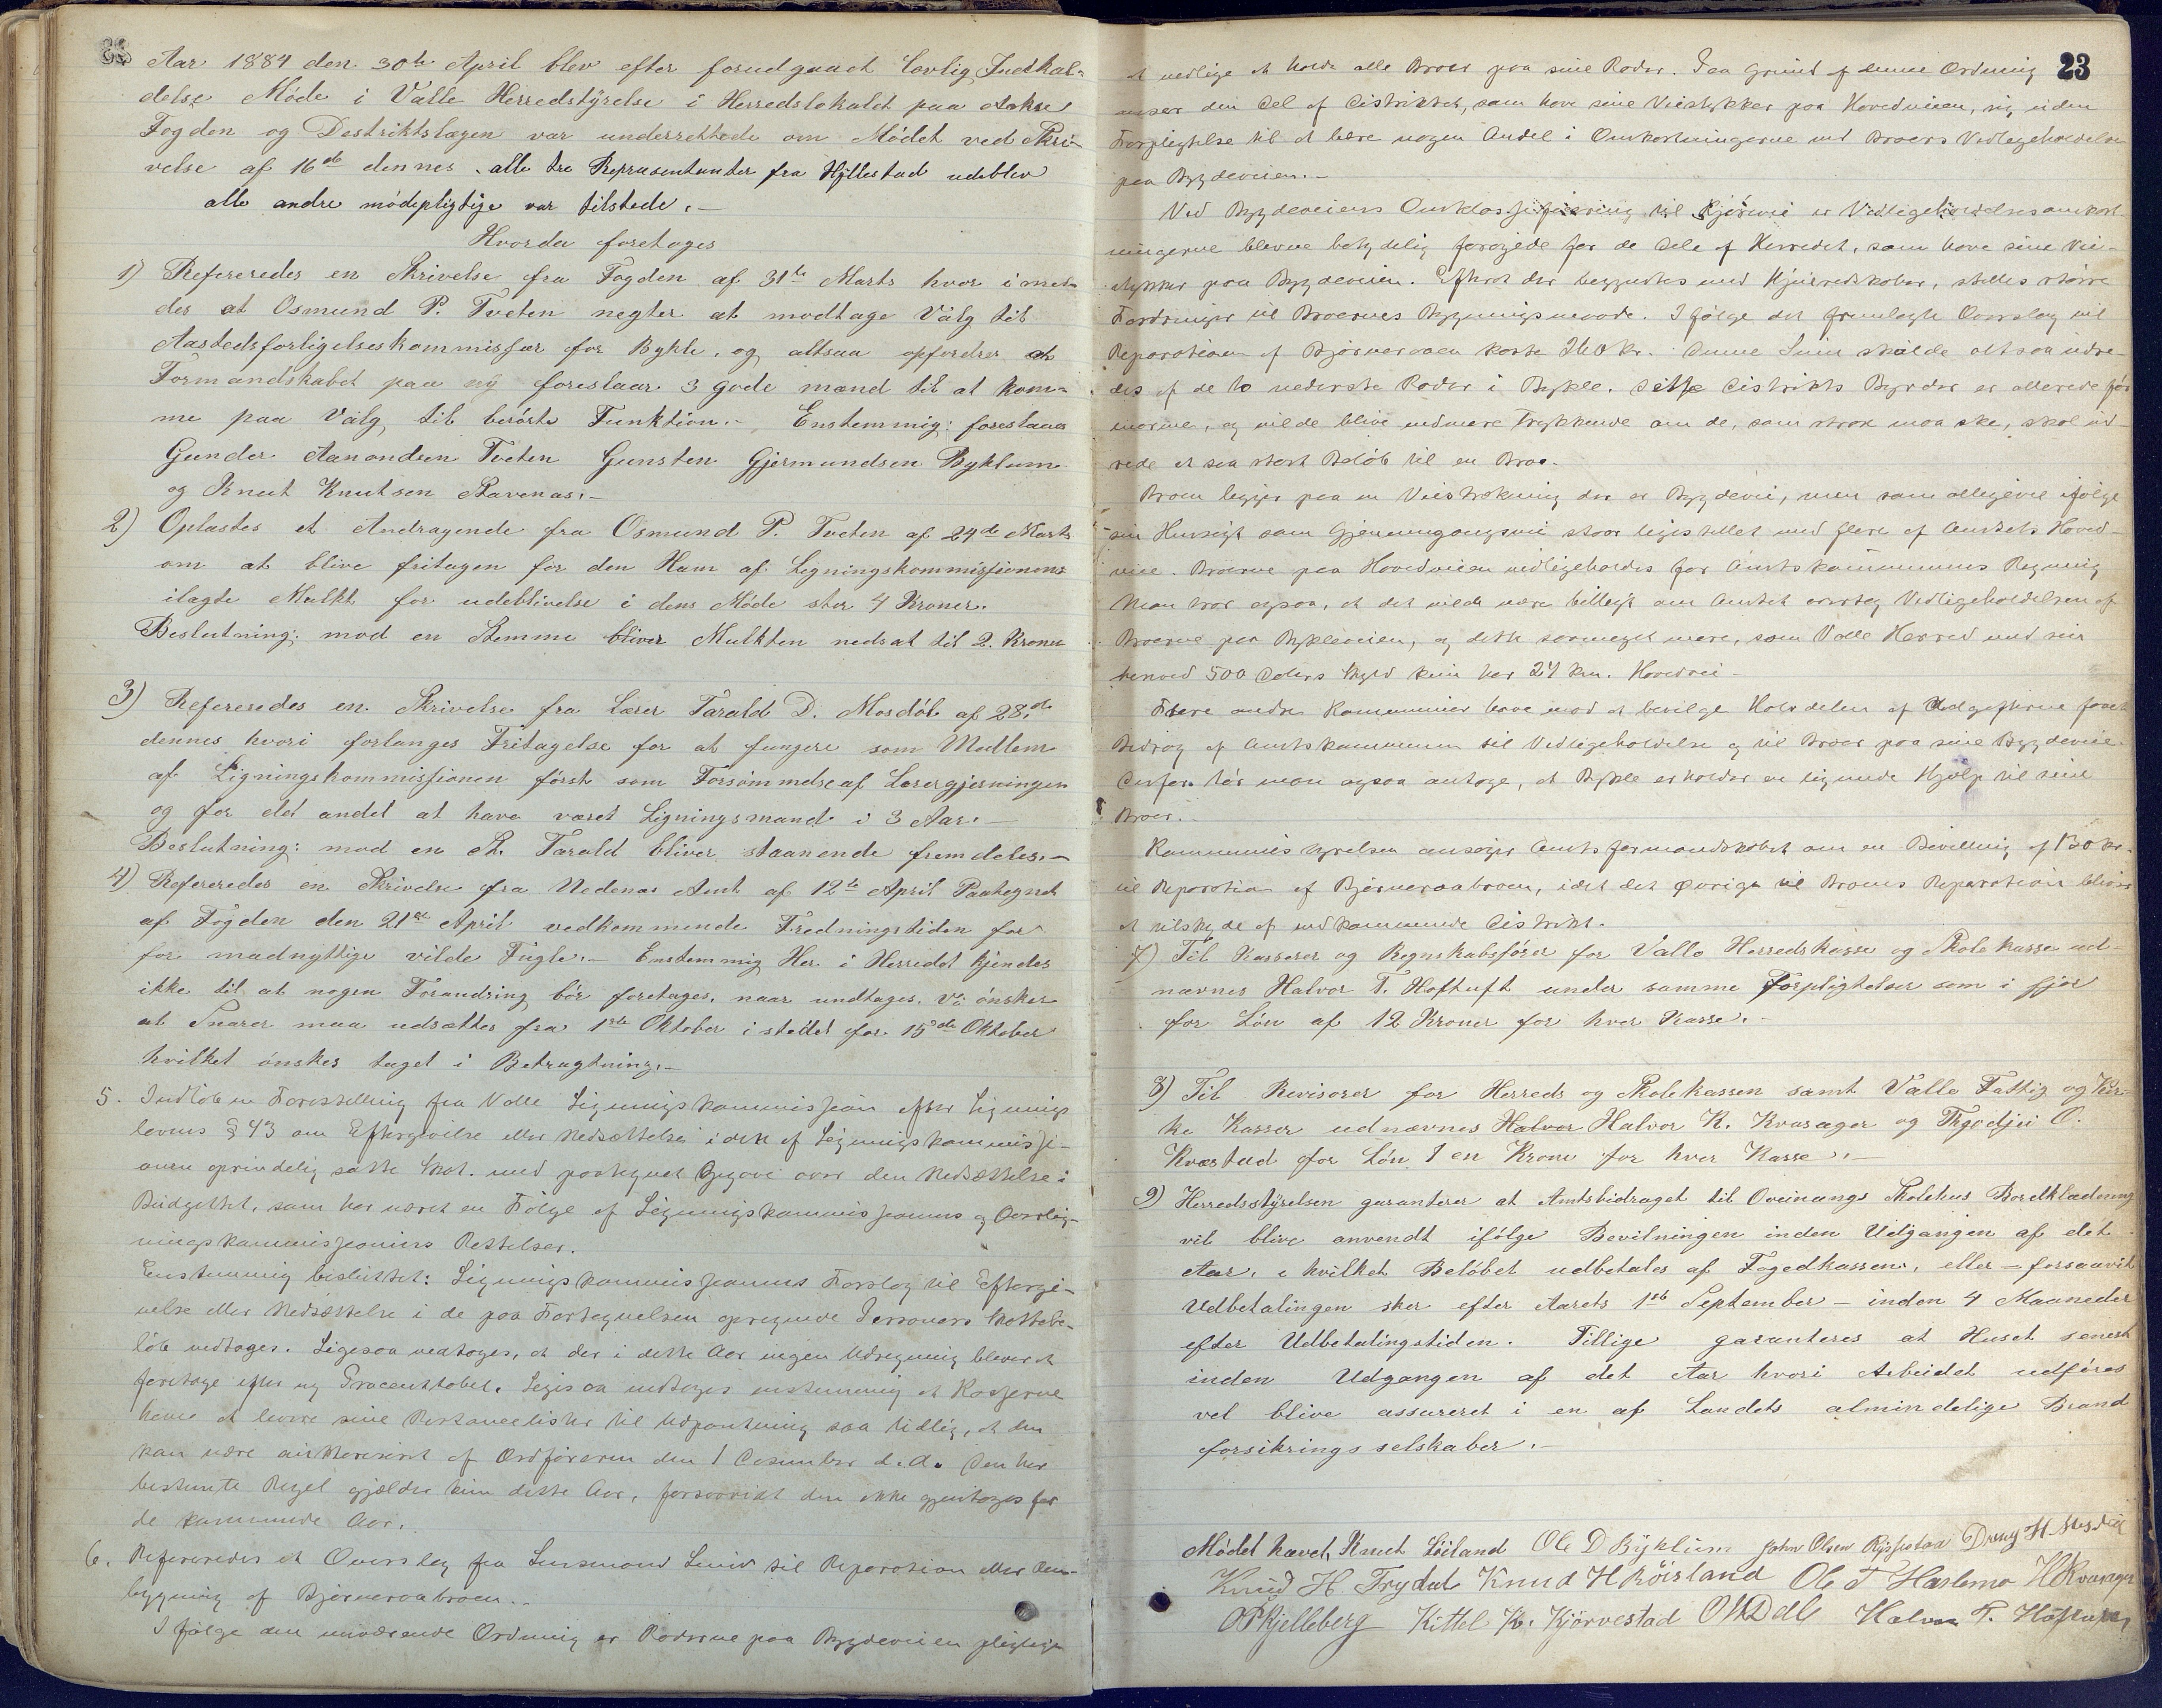 Aar 1884 den 30te April blev efter forudgaaet lovlig Indkal=
delse Møde i Valle Herredstyrelse i Herredslokalet paa Aakre
Fogden og Destriktslægen var underrettede om Mødet ved Skri-
velse af 16de dennes. alle tre Repræsentanter fra Hyllestad udeblev
alle andre mødepligtige var tilstede.-
Hvorda foretoges
1) Refereredes en Skrivelse fra Fogden af 31te Marts hvor i mel-
des at Osmund P. Tveten negter at modtage Valg til
Aastedsforligelseskommissær for Bykle, og altsaa opfordrer at
Formandskabet paa ny foreslaar 3 gode mænd til at kom=
me paa Valg, til berørte Funktion.- Enstemmig: foreslaaes
Gunder Aanondsen Tveten Gunsten Gjermundsen Byklum
og Knut Knutsen Stavenæs.-
2) Oplæstes et Andragende fra Osmund P. Tveten af 24de Marts
om at blive fritagen for den Ham af Ligningskommissionens
ilagte Mulkt for udeblivelse i dens Møde stor 4 Kroner.
Beslutning: mod en Stemme bliver Mulkten nedsat til 2. Kroner
3) Refereredes en Skrivelse fra Lærer Tarald D. Mosdøl af 28de
dennes hvori forlanges Fritagelse for at fungere som Medlem
af Ligningskommissionen først som Forsømmelse af Lærergjerningen
og for det andet at have været Ligningsmand i 3 Aar.-
Beslutning: mod en St. Tarald bliver staaende fremdeles.-
4) Refereredes en Skrivelse fra Nedenæs Amt af 12te April Paategnet
af Fogden den 21de April vedkommende Fredningstiden for
for madnyttige vilde Fugle.- Enstemmig Her i Herredet kjendes
ikke til at nogen Forandring bør foretages, naar undtages. Vi ønsker
at Snarer maa udsættes fra 1ste Oktober i stedet for 15de Oktober
hvilket ønskes taget i Betragtning.-
5. Indløb en Forestilling fra Valle Ligningskommission efter Lignings
lovens § 43 om Eftergivelse eller Nedsættelse i den af Ligningskommissi-
onen oprindelig satte Skat. med paategnet Opgave over den Nedsættelse i
Budgettet, som har været en Følge af Ligningskommissionens og Overlig-
ningskommissionens Rettelser.
Enstemmig besluttet: Ligningskommissionens Forslag til Eftergi-
velse eller Nedsættelse i de paa Fortegnelsen opregnede Personers Skattebe-
løb vedtages. Ligesaa vedtages, at der i dette Aar ingen Udregning bliver at
foretage efter ny Procenttabel. Ligesaa vedtages enstemmig at Kasserne
have at levere sine Restanselister til Udpantning saa tidlig, at den
kan være auktoriseret af Ordføreren den 1 December d.A. Den her
bestemte Regel gjælder kun dette Aar, forsaavidt den ikke gjentages for
de kommende Aar.
6. Refereredes et Overslag fra Lensmand Leiv til Reparation eller Om-
bygning af Bjørneraabroen.-
I følge den nuværende Ordning er Roderne paa Bygdeveien pligtige
23
at vedlige at holde alle Broer paa sine Roder. Paa Grund af denne Ordning
anser den Del af Distriktet, som have sine Veistykker paa Hovedveien, sig uden
Forpligtelse til at bære nogen Andel i Omkostningerne ved Broers Vedligeholdelse
paa Bygdeveien.-
Ved Bygdeveiens Omklassifisering til Kjørevei er Vedligeholdelsesomkost-
ningerne blevne betydelig forøgede for de Dele af Herredet, som have sine Vei-
stykker paa Bygdeveien. Efterat der begyndtes med Hjulredskaber, stilles større
Fordringer til Broernes Bygningsmaade. I følge det fremlagte Overslag vil
Reparationen af Bjørneraaen koste 260 Kr. Denne Sum skulde altsaa udre-
des af de to nederste Roder i Bykle. Dette Distrikts Byrder er allerede før
enorme, og vilde blive endmere trykkende om de, som strax maa ske, skal ud-
rede et saa stort Beløb til en Bro.
Broen ligger paa en Veistrækning der er Bygdevei, men som alligevel ifølge
sin Hensigt som Gjennemgangsvei staar ligestillet med flere af Amtets Hoved-
veie. Broerne paa Hovedveien vedligeholdes for Amtskommunens Regning
Man tror ogsaa, at det vilde være billigt om Amtet overtog Vedligeholdelsen af
Broerne paa Bykleveien, og dette saameget mere, som Valle Herred med sin
henved 500 Dalers Skyld kun har 24 km. Hovedvei-
Flere andre Kommuner have mod at bevilge Halvdelen af Udgifterne faaet
Bidrag af Amtskommunen til Vedligeholdelse og til Broer paa sine Bygdeveie.
Derfor tør man ogsaa antage, at Bykle erholder en lignende Hjælp til sine
Broer.
Kommunestyrelsen ansøger Amtsformandskabet om en Bevilling af 130 Kr.
til Reparation af Bjørneraabroen, idet det øvrige til Broens Reparation bliver
at tilskyde af vedkommende Distrikt.
7) Til Kasserer og Regnskabsfører for Valle Herredskasse og Skolekasse ud-
nævnes Halvor T. Hoftuft under samme Forpligtelser som i fjor
for Løn af 12 Kroner for hver Kasse.-
8) Til Revisorer for Herreds og Skolekassen samt Valle Fattig og Kir-
ke Kasser udnævnes Halvor Halvor K. Kvasager og Tygedjei O.
Kvæstad for Løn 1 en Krone for hver Kasse.-
9) Herredsstyrelsen garanterer at Amtsbidraget til Oveinangs Skolehus Bordklædning
vil blive anvendt ifølge Bevilningen inden Udgangen af det
Aar, i hvilket Beløbet udbetales af Fogedkassen, eller - forsaavidt
Udbetalingen sker efter Aarets 1ste September - inden 4 Maaneder
efter Udbetalingstiden. Tillige garanteres at Huset senest
inden Udgangen af det Aar hvori Arbeidet udføres
vil blive assureret i en af Landets almindelige Brand
forsikringsselskaber.-
Mødet hævet, Knut Løiland Ole D Byklum John Olsen Rysstad Dreng H. Mosdøl
Knud H. Trydal Knud H Røisland Ole T Harlemo
O P Kjelleberg Kittel K. Kjørvestad O K Dale Halvor T. Hoftuft